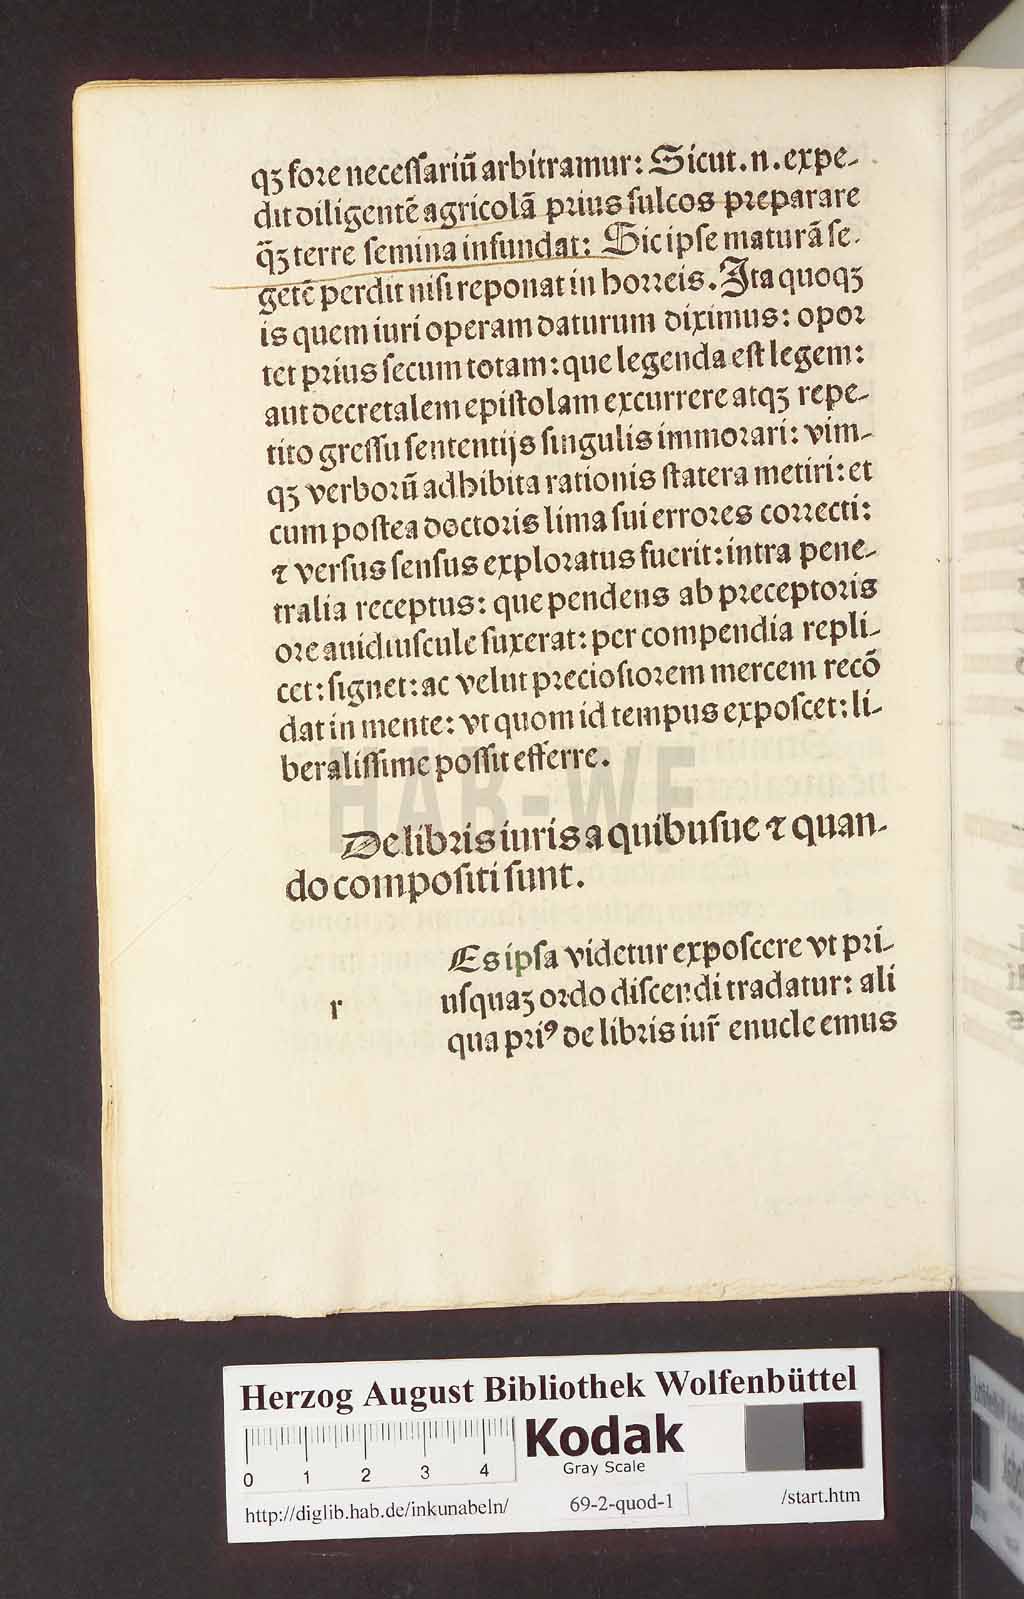 qꝫ fore neceſſariū arbitramur: Sicut .n. expe-
dit diligentē agricolā prius ſulcos preparare
q̃ꝫ terre ſemina infundat: Sic ipſe maturā ſe-
getē perdit niſi reponat in horreis. Ita quoqꝫ
is quem iuri operam daturum diximus: opor
tet prius ſecum totam: que legenda eſt legem:
aut decretalem epiſtolam excurrere atqꝫ repe-
tito greſſu ſententijs ſingulis immorari: vim-
qꝫ verborū adhibita rationis ſtatera metiri: et
cum poſtea doctoris lima ſui errores correcti:
⁊ verſus ſenſus exploratus fuerit: intra pene-
tralia receptus: que pendens ab preceptoris
ore auidiuſcule ſuxerat: per compendia repli-
cet: ſignet: ac velut precioſiorem mercem recō
dat in mente: vt quom id tempus expoſcet: li-
beraliſſime poſſit efferre.
De libris iuris a quibuſue ⁊ quan-
do compoſiti ſunt.
Es ipſa videtur expoſcere vt pri-
r uſquaꝫ ordo diſcendi tradatur: ali
qua priꝰ de libris iur̃ enucleemus
HAB-WF
Herzog August Bibliothek Wolfenbüttel
0 1 2 3 4
Kodak
Gray Scale
http://diglib.hab.de/inkunabeln/ 69-2-quod-1 /start.htm